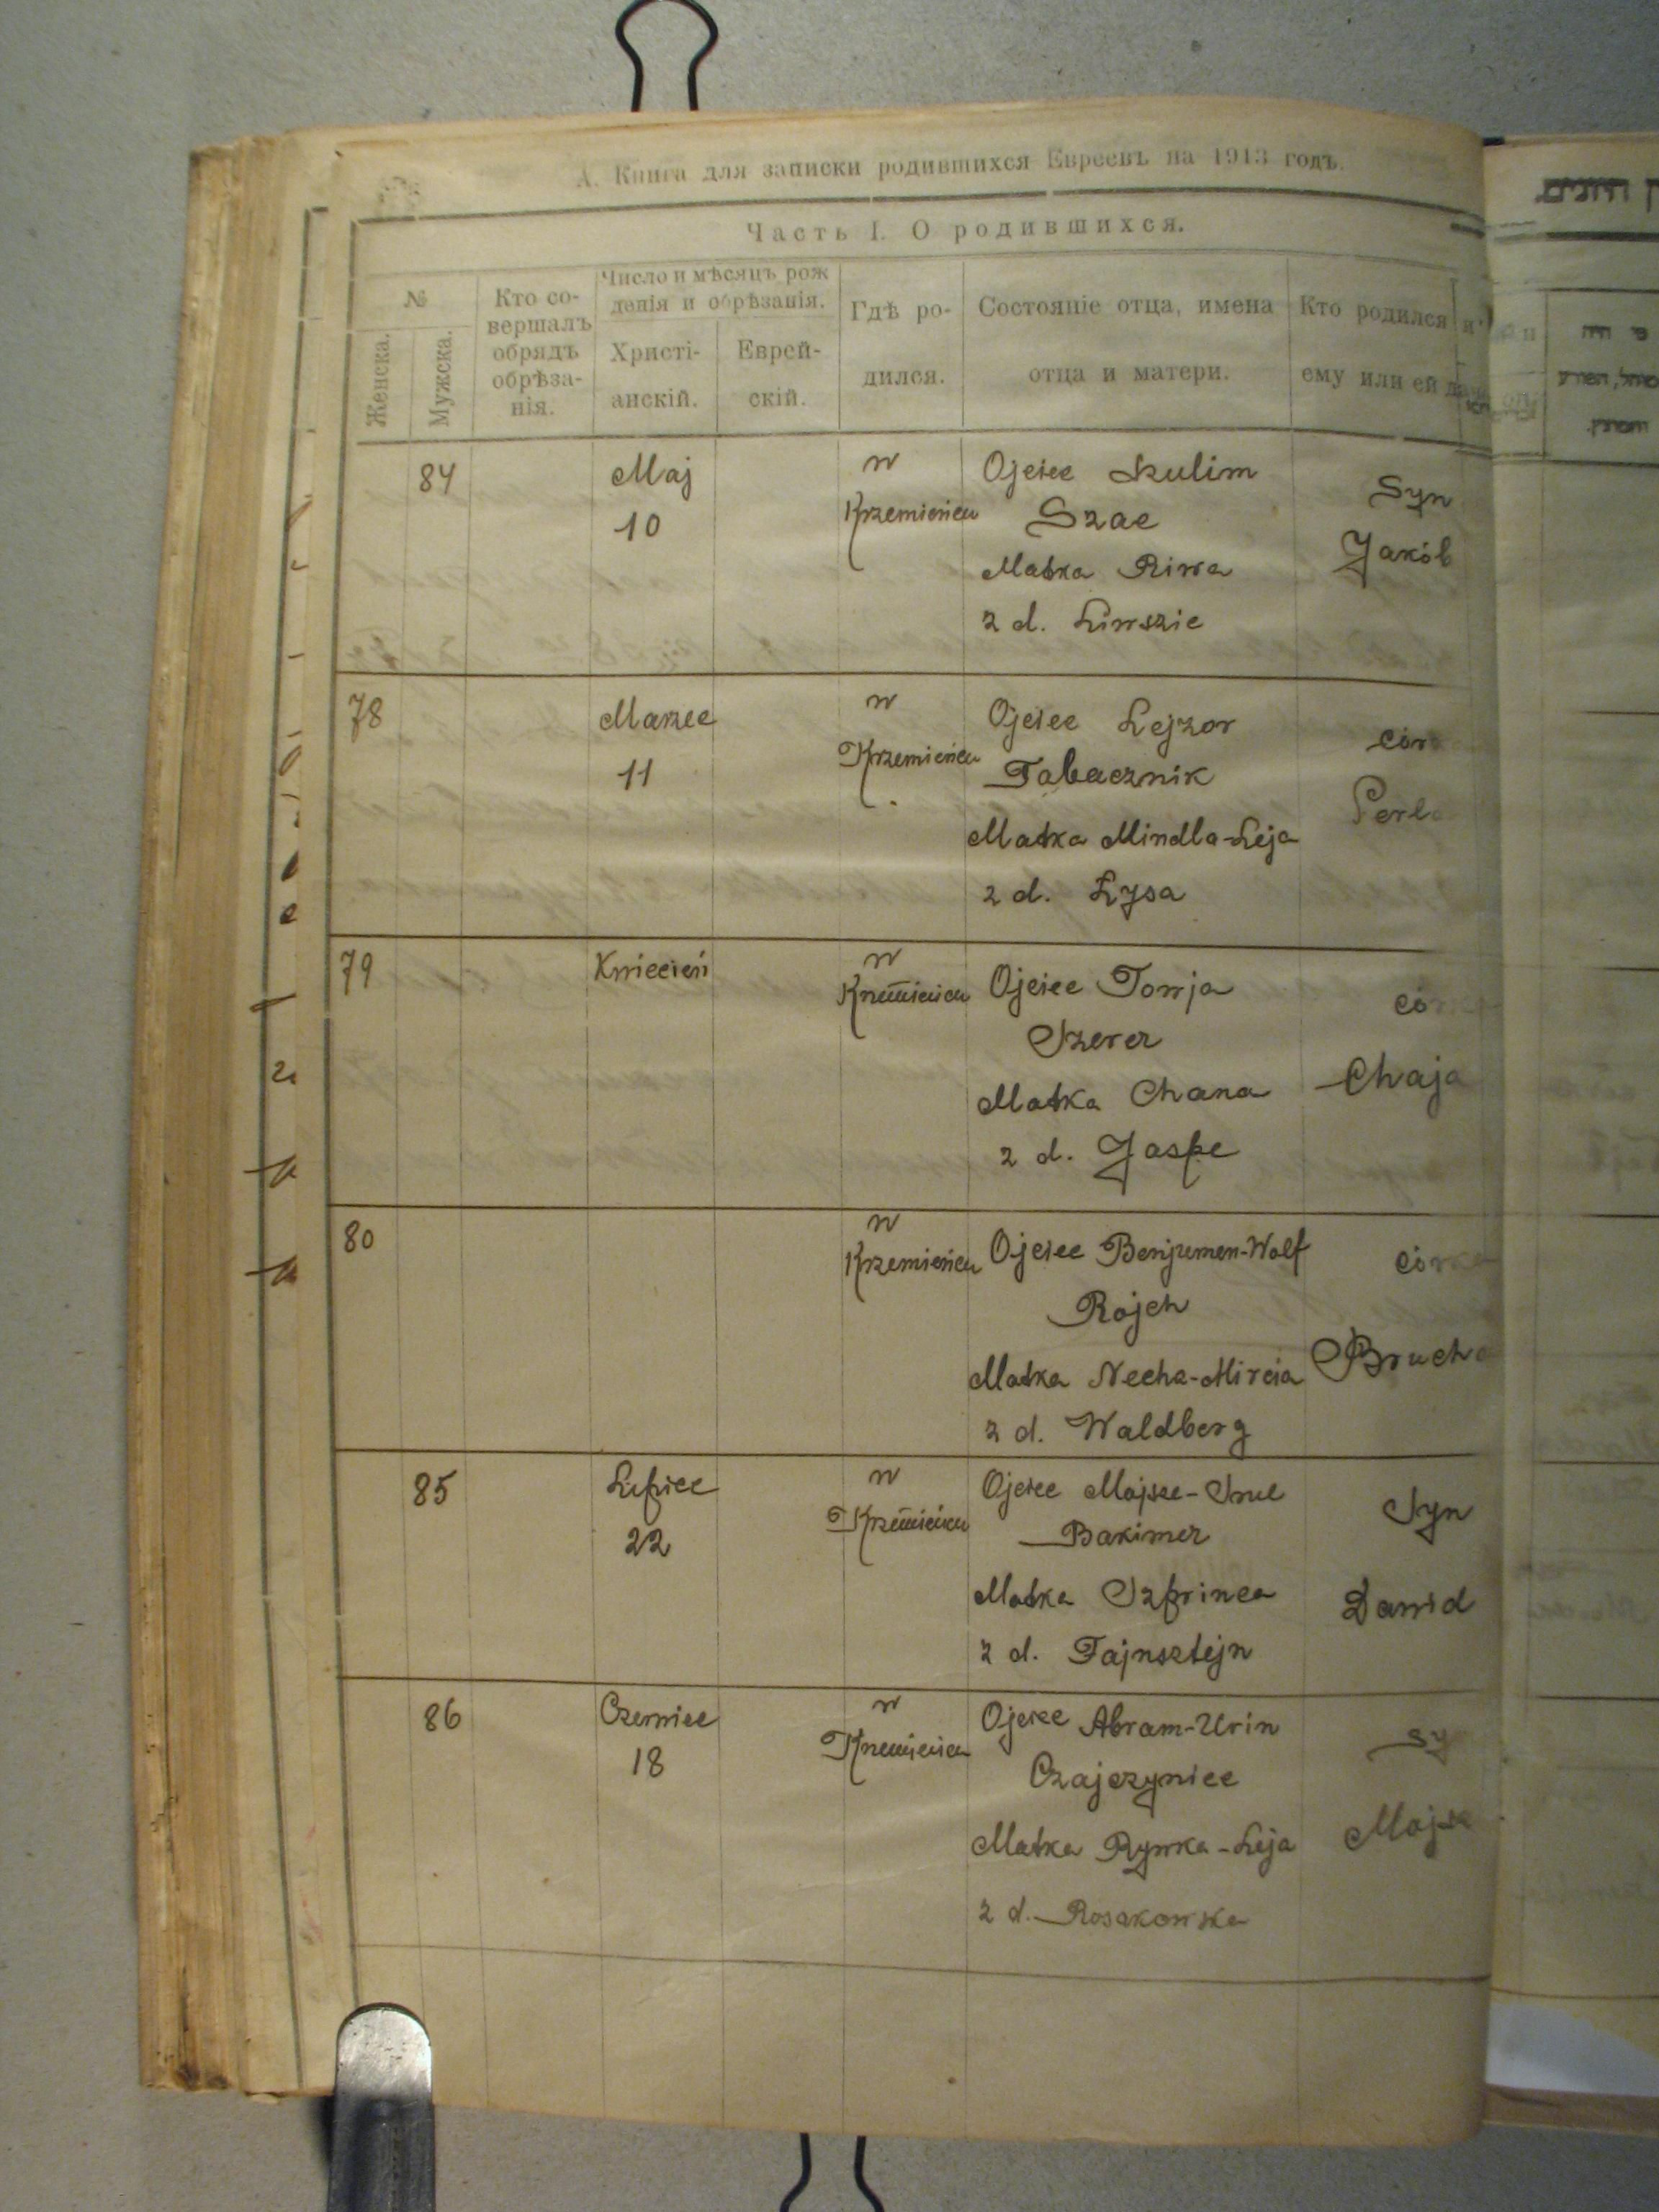 А. Книга для записки родившихся Евреевъ на 1913 годъ.
Часть I. О родившихся.
№
Женска.
Мужска.
Кто со-
вершалъ
обрядъ
обрѣза-
нія.
Число и мѣсяцъ рож
денія и обрѣзанія.
Христі-
анскій.
Еврей-
скій.
Гдѣ ро-
дился.
Состояніе отца, имена
отца и матери.
Кто родился и
ему или ей
84
Maj
10
w
Krzemieńcu
Ojciec Szulim
Szac
Matka Riwa
z d. Liwszic
Syn
Jakób
78
Marzec
11
w
Krzemieńcu
Ojciec Lejzor
Tabacznik
Matka Mindla-Leja
z d. Łysa
Perla
79
Kwiecień
w
Krzemieńcu
Ojciec Towja
Szerer
Matka Chana
z d. Jaspe
Chaja
80
w
Krzemieńcu
Ojciec Benjumen-Wolf
Rojch
Matka Necha-Mircia
z d. Waldberg
córka
Brucha
85
Lipiec
22
w
Krzemieńcu
Ojciec Mojsze-Srul
Bakimer
Matka Szprinca
z d. Fajnsztejn
Syn
Dawid
86
Czerwiec
18
w
Krzemieńcu
Ojciec Abram-Urin
Czajczyniec
Matka Rywka-Leja
z d. Rosakowska
sy
Mojsz